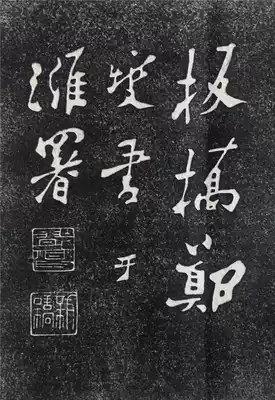 板橋鄭
燮書于
濰署